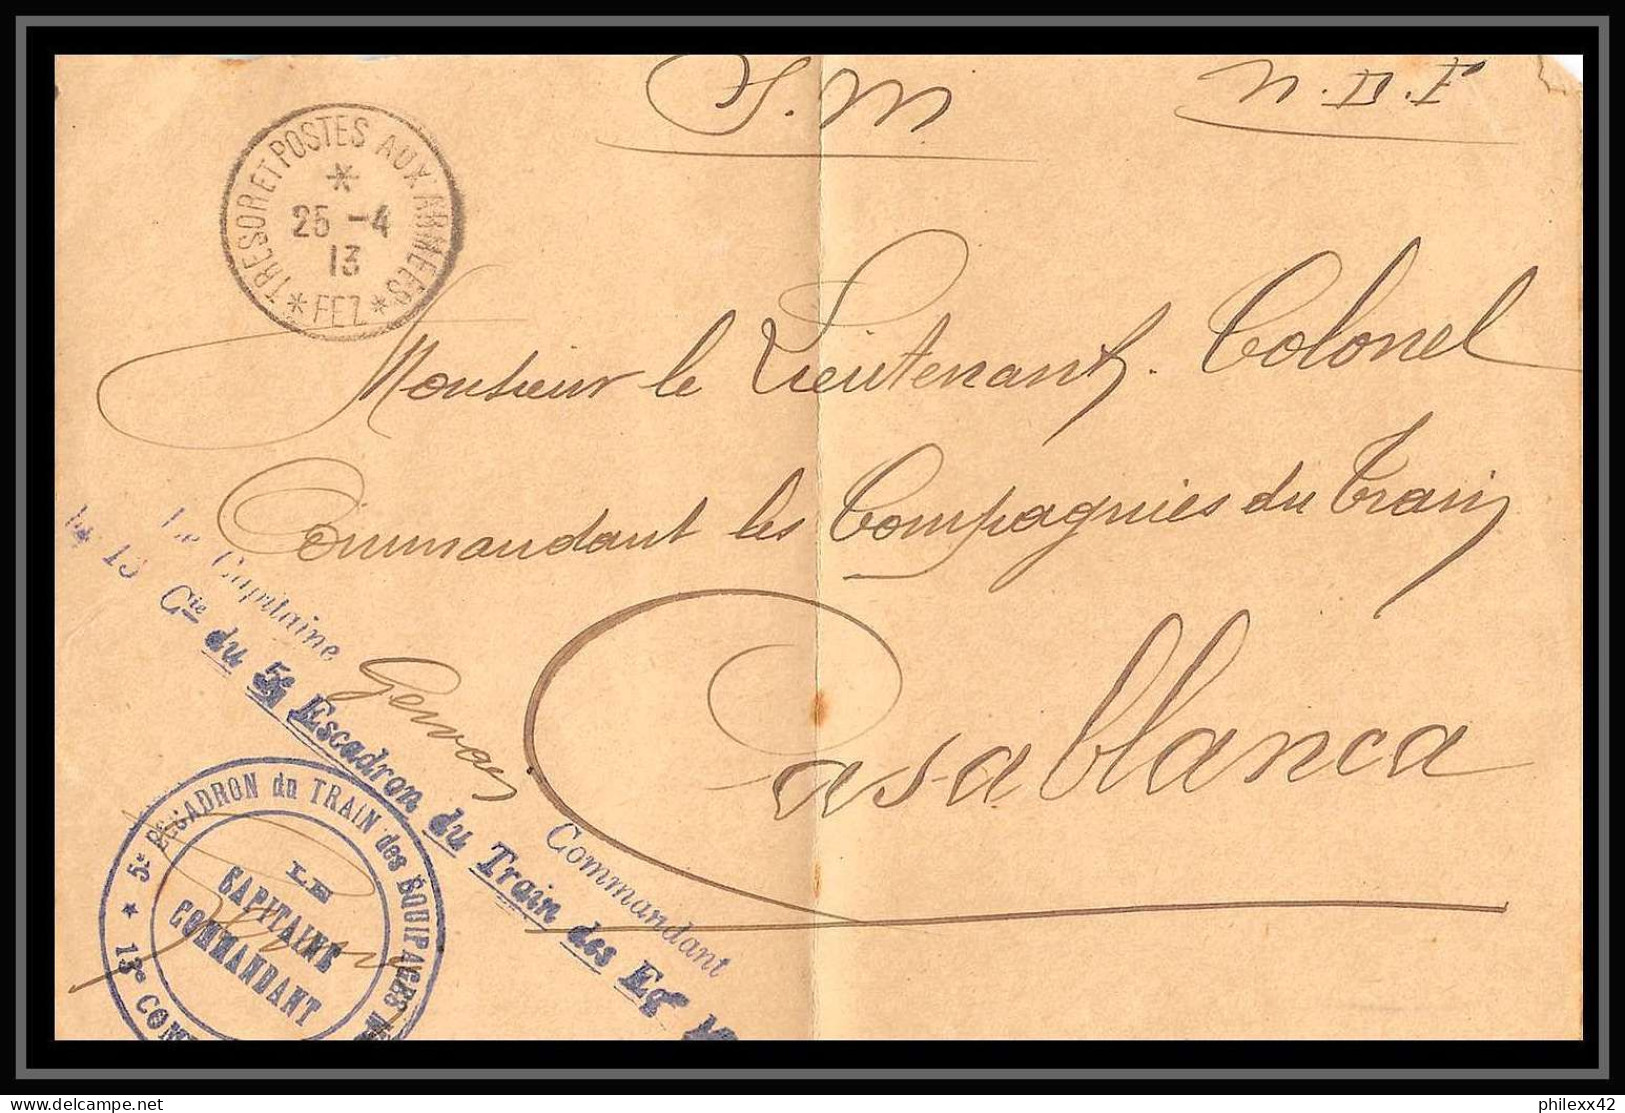 S. M
TRESOR ET POSTES AUX ARMEES
25 -4
13
* FEZ *
Monsieur le Lieutenant. Colonel
Commandant les Compagnies du Train
Casablanca
Le Capitaine Commandant
la 13 Cie du 5e Escadron du Train des Eq
Gervais
5e ESCADRON du TRAIN des EQUIPAGES
LE
CAPITAINE
COMMANDANT
* 13e COM
philexx42